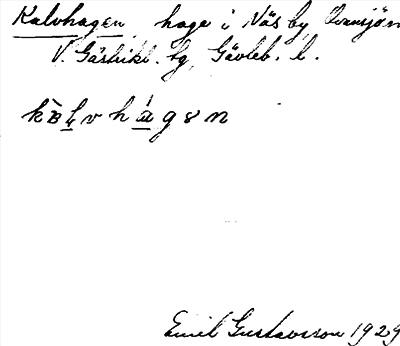 Kalvhagen, hage i Näs by, Ovansjön
V. Gästrikl. tg, Gävleb. l.
kalvhagen
Emil Gustavsson 1929